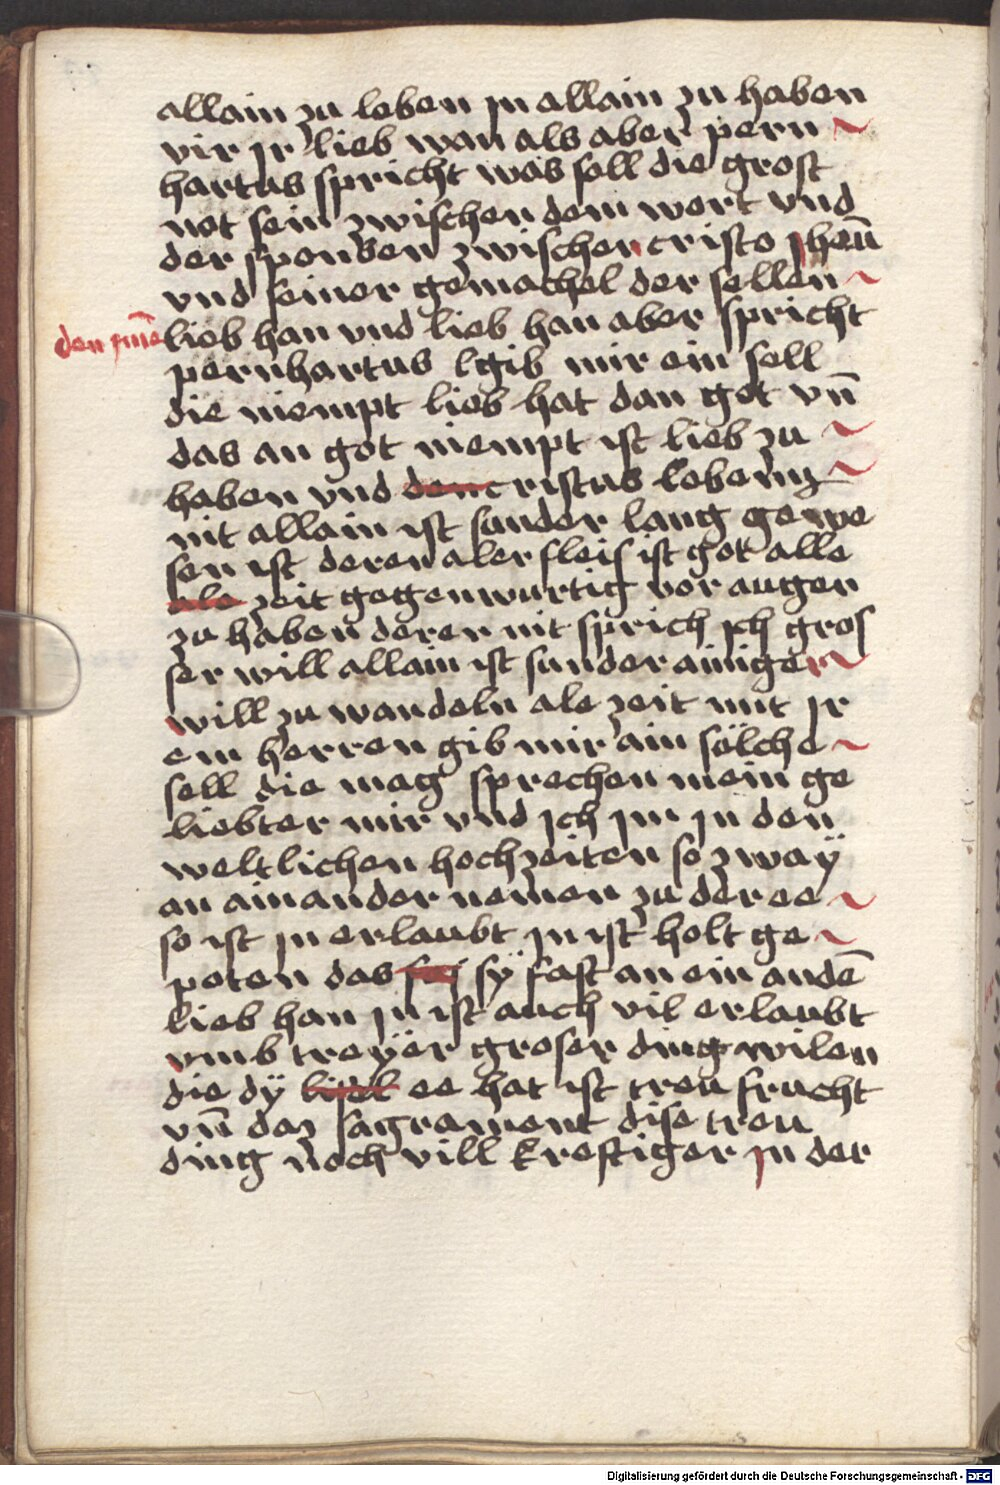 allain zu leben jn allain zu haben
vir jr lieb wan als aber pern
hartus spricht was soll die grost
not sein zwischen dem wort vnd
der sponsen zwischen cristo jhesū
vnd seiner gemachel der sellen
lieb han vnd lieb han aber spricht
pernhartus gib mir ein sell
die niempt lieb hat dan got vn̄
das an got niempt ist lieb zu
haben vnd den cristus lebeing
nit allain ist sunder lang gewe
sen ist deren aler fleis ist got alle
ale zeit gegenwurtig vor augen
zu haben derer nit sprich ich gros
ser will allain ist sunder ainiger
will zu wandeln ale zeit mit jr
em herren gib mir ain sölche
sell die mag sprechen mein ge
liebter mir vnd jch jm jn den
weltlichen hochzeiten so zwaÿ
an ainander nemen zu der ee
so ist jn erlaubt jn ist holt ge
poten das sÿ fast an ein andē
lieb han jn ist auch vil erlaubt
vmb treÿer groser ding wilen
die dÿ ee hat ist treu frucht
vn̄ daz sagrament dise treu
ding noch vill kreftiger jn der
Digitalisierung gefördert durch die Deutsche Forschungsgemeinschaft - DFG